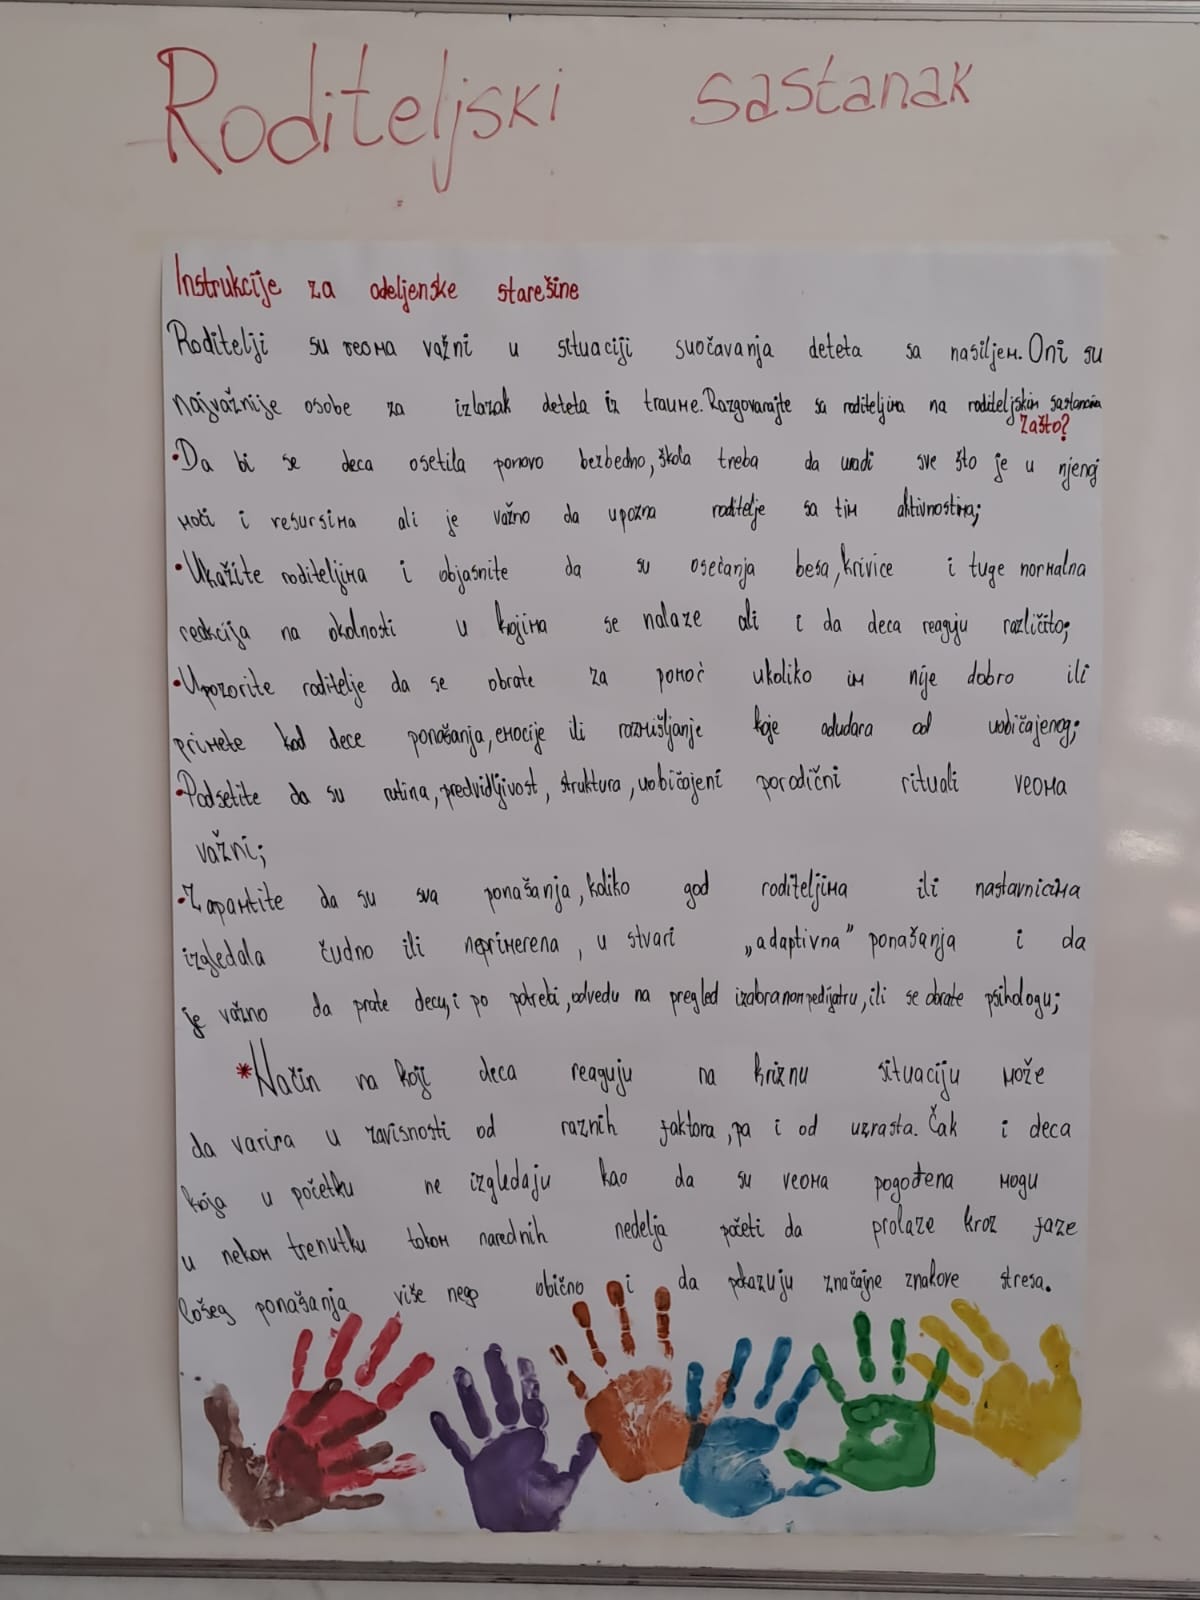 Roditeljski sastanak
Instrukcije za odeljenske starešine
Roditelji su veoma važni u situaciji suočavanja deteta sa nasiljem. Oni su
najvažnije osobe za izlazak deteta iz traume. Razgovarajte sa roditeljima na roditeljskim sastancima
Zašto?
•Da bi se deca osetila ponovo bezbedno, škola treba da uradi sve što je u njenoj
moći i resursima ali je važno da upozna roditelje sa tim aktivnostima;
•Ukažite roditeljima i objasnite da su osećanja besa, krivice i tuge normalna
reakcija na okolnosti u kojima se nalaze ali i da deca reaguju različito;
•Upozorite roditelje da se obrate za pomoć ukoliko im nije dobro ili
primete kod dece ponašanja, emocije ili razmišljanje koje odudara od uobičajenog;
•Podsetite da su rutina, predvidljivost, struktura, uobičajeni porodični rituali veoma
važni;
•Zapamtite da su sva ponašanja, koliko god roditeljima ili nastavnicima
izgledala čudno ili neprimerena, u stvari „adaptivna” ponašanja i da
je važno da prate decu, i po potrebi, odvedu na pregled izabranom pedijatru, ili se obrate psihologu;
*Način na koji deca reaguju na kriznu situaciju može
da varira u zavisnosti od raznih faktora, pa i od uzrasta. Čak i deca
koja u početku ne izgledaju kao da su veoma pogođena mogu
u nekom trenutku tokom narednih nedelja početi da prolaze kroz faze
lošeg ponašanja više nego obično i da pokazuju značajne znakove stresa.